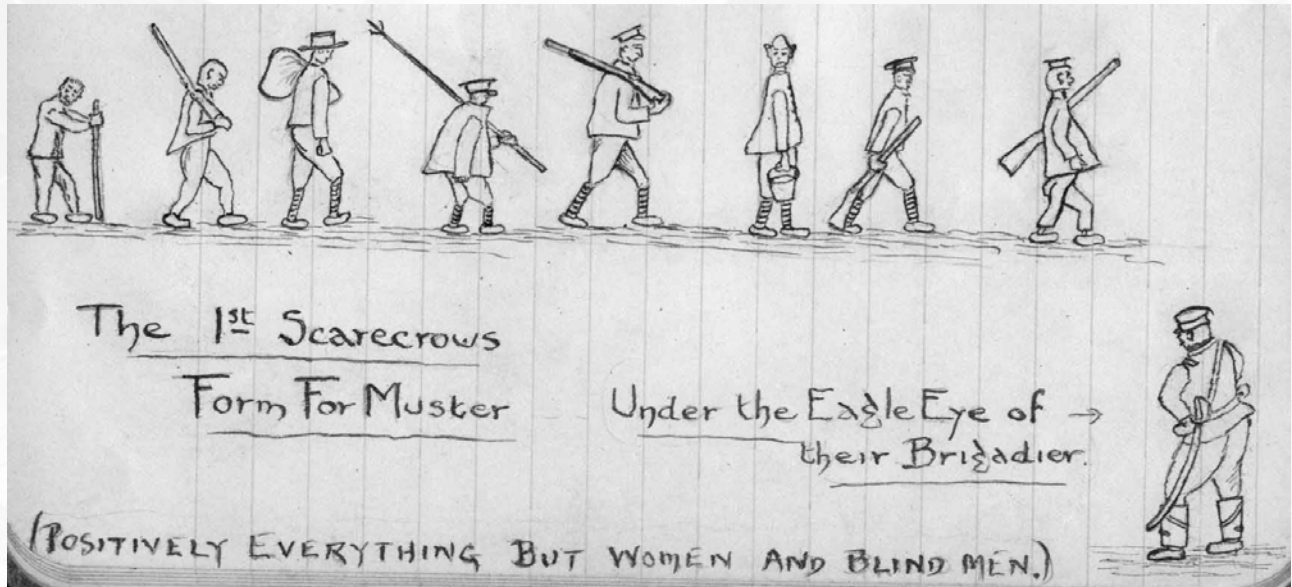 The 1st Scarecrows
Form For Muster
Under the Eagle Eye of →
their Brigadier.
(POSITIVELY EVERYTHING BUT WOMEN AND BLIND MEN.)